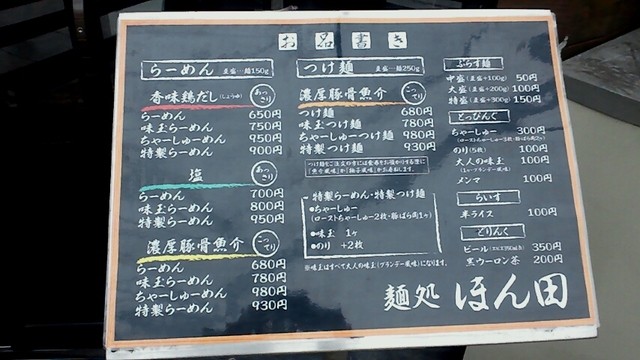 お品書き
らーめん 並盛…麺150g
香味鶏だし(しょうゆ) あっさり
らーめん 650円
味玉らーめん 750円
ちゃーしゅーめん 950円
特製らーめん 900円
塩 あっさり
らーめん 700円
味玉らーめん 800円
特製らーめん 950円
濃厚豚骨魚介 こってり
らーめん 680円
味玉らーめん 780円
ちゃーしゅーめん 980円
特製らーめん 930円
つけ麺 並盛…麺250g
濃厚豚骨魚介 こってり
つけ麺 680円
味玉つけ麺 780円
ちゃーしゅーつけ麺 980円
特製つけ麺 930円
特製らーめん・特製つけ麺
●ちゃーしゅー
(ローストちゃーしゅー2枚・豚ばら肉1ヶ)
●味玉 1ヶ
●のり +2枚
※味玉はすべて大人の味玉(ブランデー風味)になります。
ぷらす麺
中盛(並盛+100g) 50円
大盛(並盛+200g) 100円
特盛(並盛+300g) 150円
とっぴんぐ
ちゃーしゅー 300円
のり(5枚) 100円
大人の味玉 100円
(1ヶ・ブランデー風味)
メンマ 100円
らいす
半ライス 100円
どりんく
ビール 350円
黒ウーロン茶 200円
麺処 ほん田